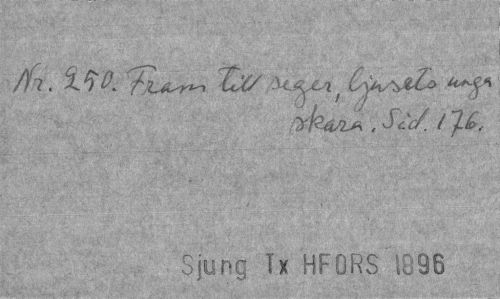 Nr. 250. Fram till seger, ljusets unga
skara. Sid. 176.
Sjung Tx HFORS 1896